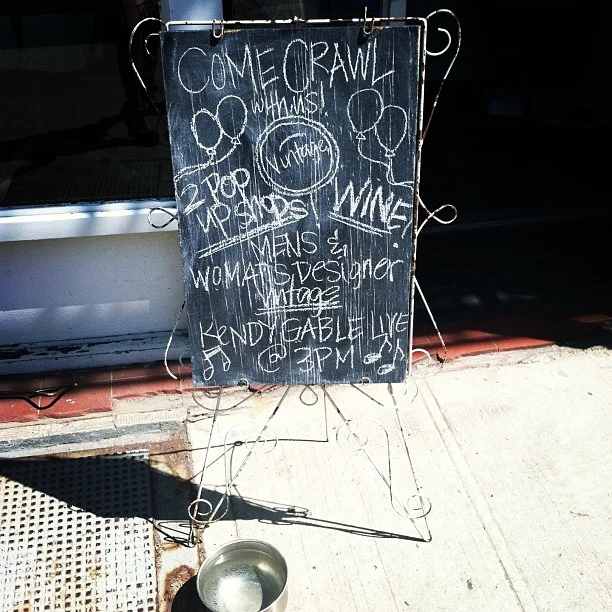 COME CRAWL
with us!
Vintage
2 POP
UP SHOPS!
WINE!
MENS &
WOMANS Designer
vintage
KENDY GABLE LIVE
@ 3PM